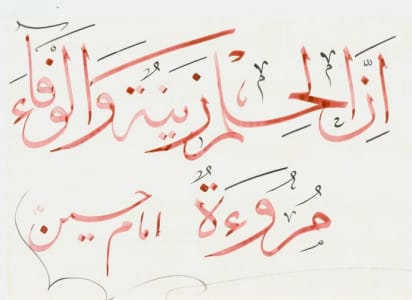 اِنَّ الحِلمَ زینَةٌ وَالوَفاءَ
مُرُوءَةٌ امام حسین